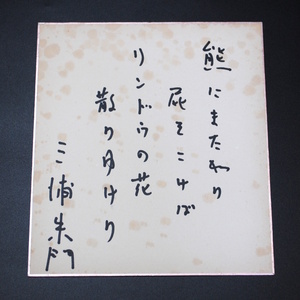 熊にまたがり
屁をこけば
リンドウの花
散りゆけり
三浦朱門